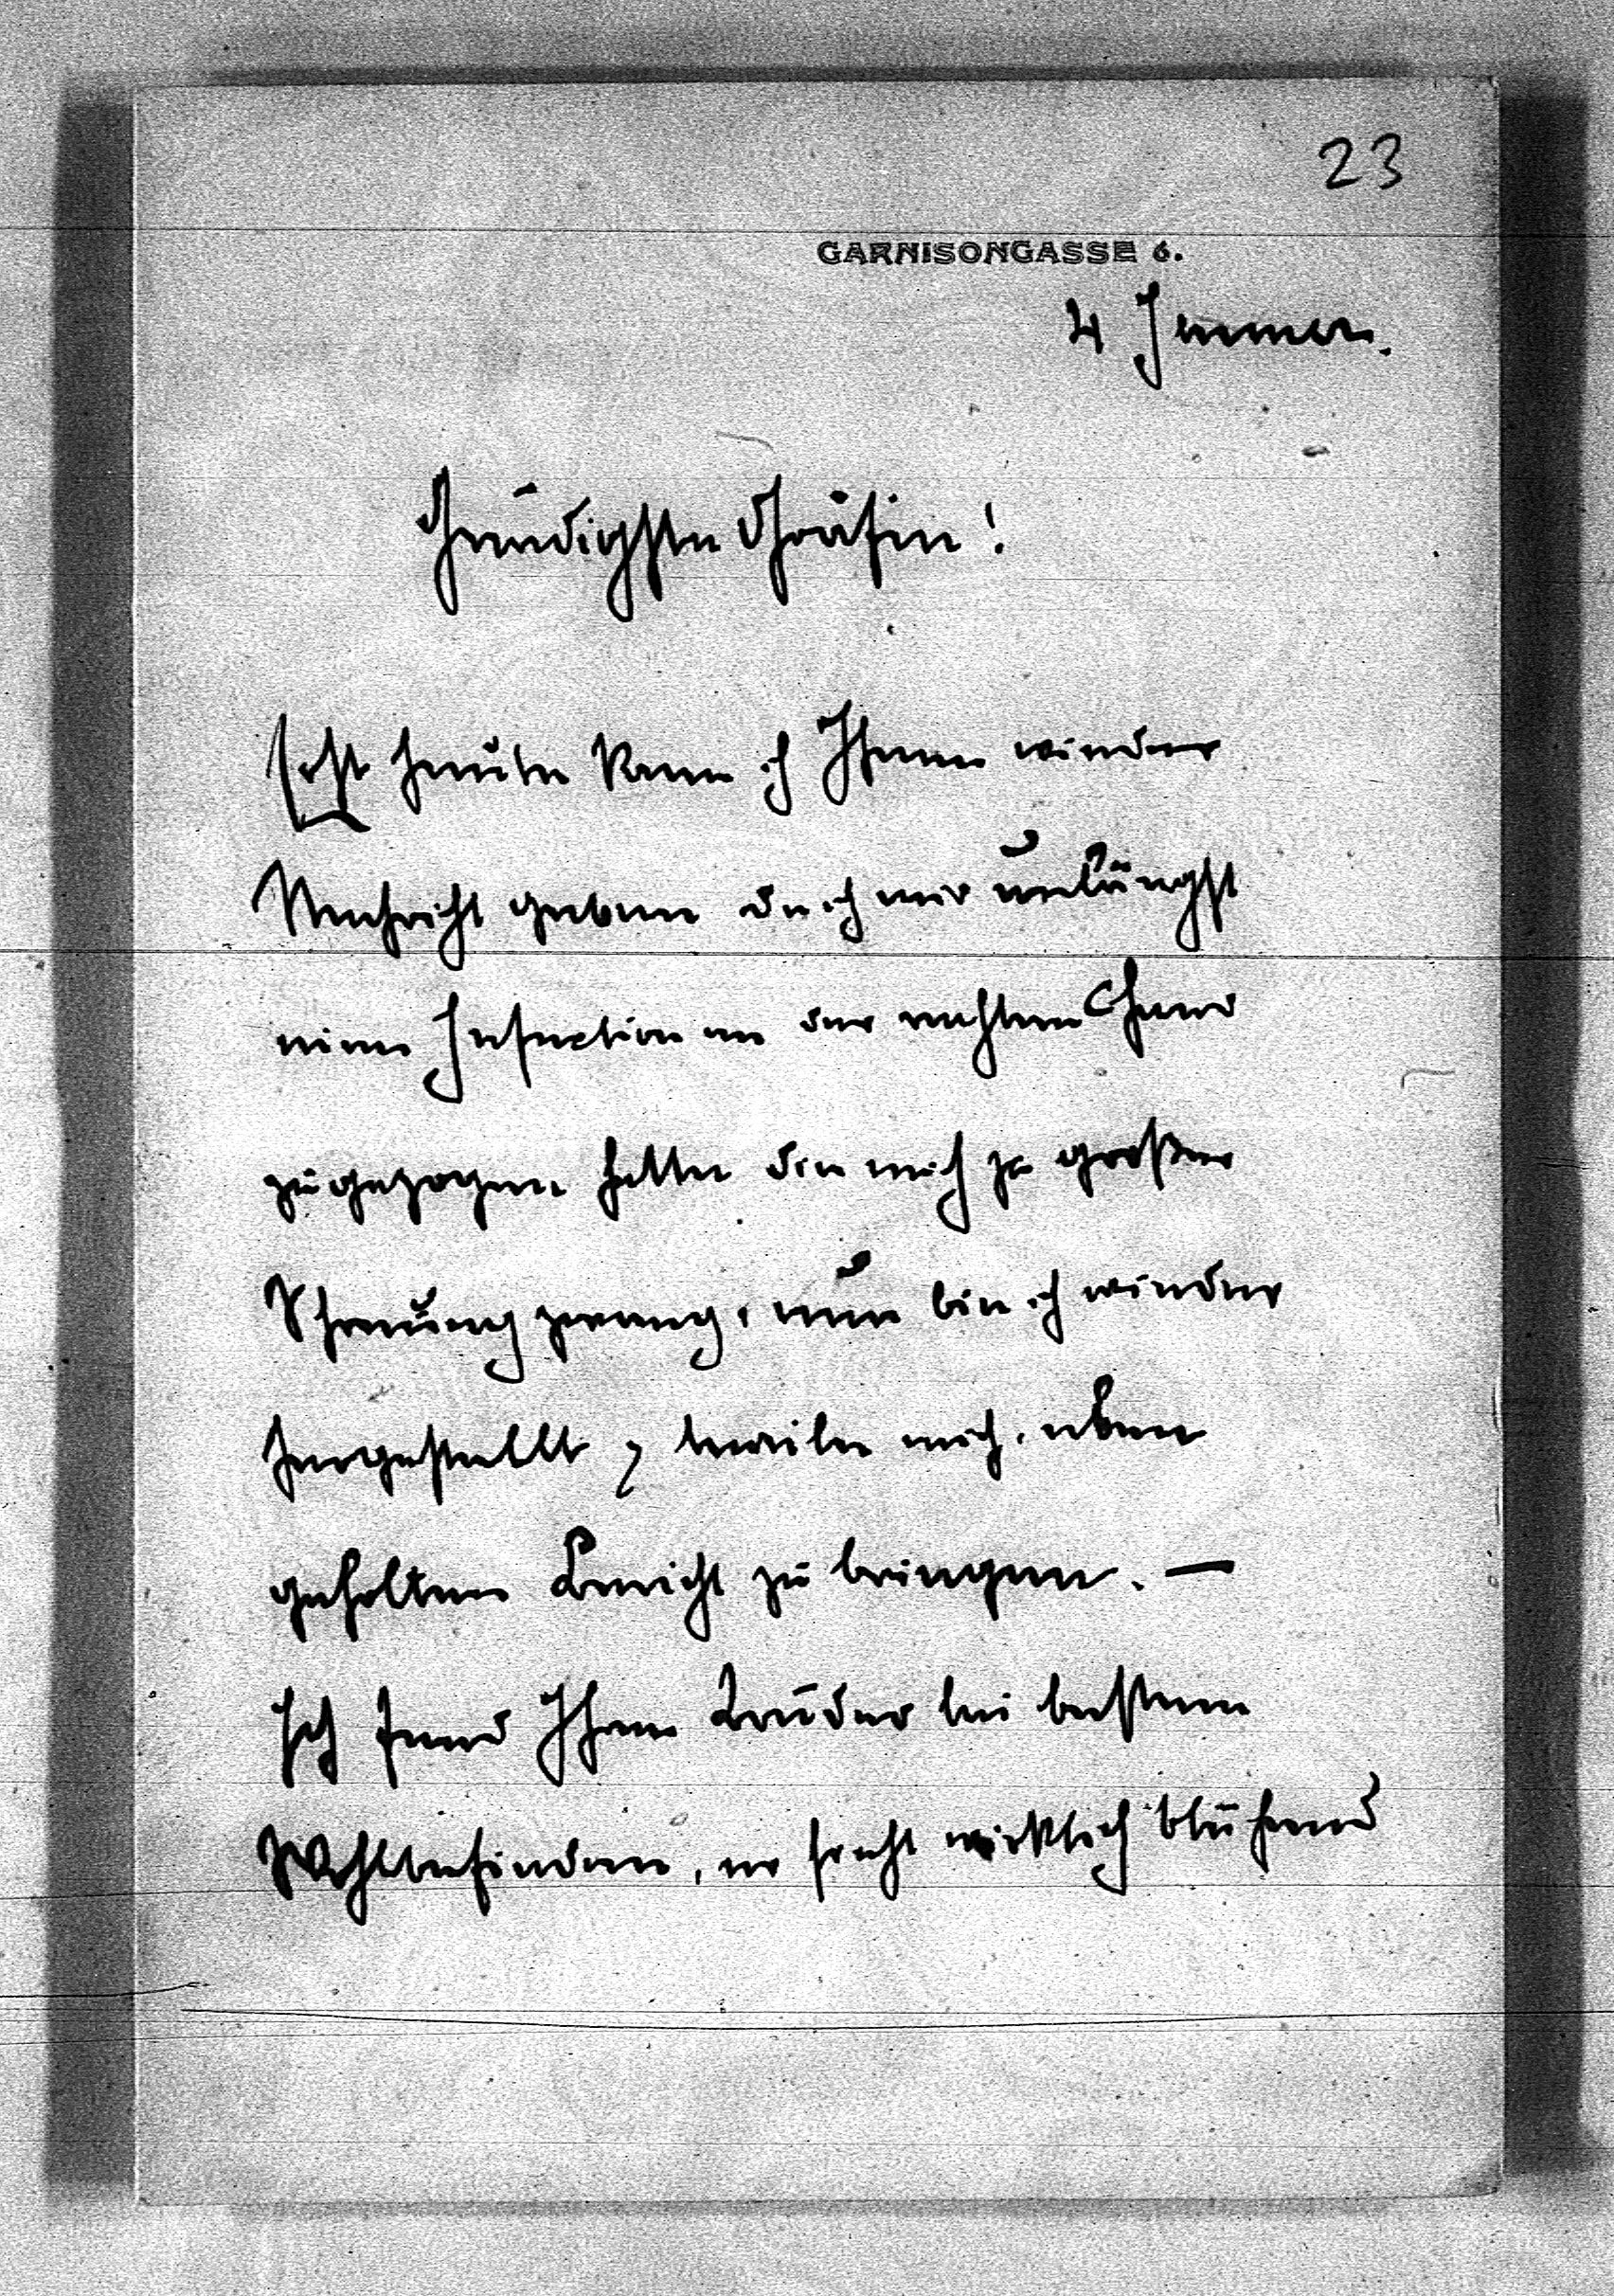 23
GARNISONGASSE 6.
4 Jenner.
Gnädigste Gräfin!
Erst heute kann ich Ihnen wieder
Nachricht geben da ich mir unlängst
eine Infection an der rechten Hand
zugezogen hatte die mich zu großer
Schonung zwang, nun bin ich wieder
hergestellt & beeile mich, eben
geholten Bericht zu bringen. —
Ich fand Ihren Bruder bei bestem
Wohlbefinden, er sieht wirklich blühend